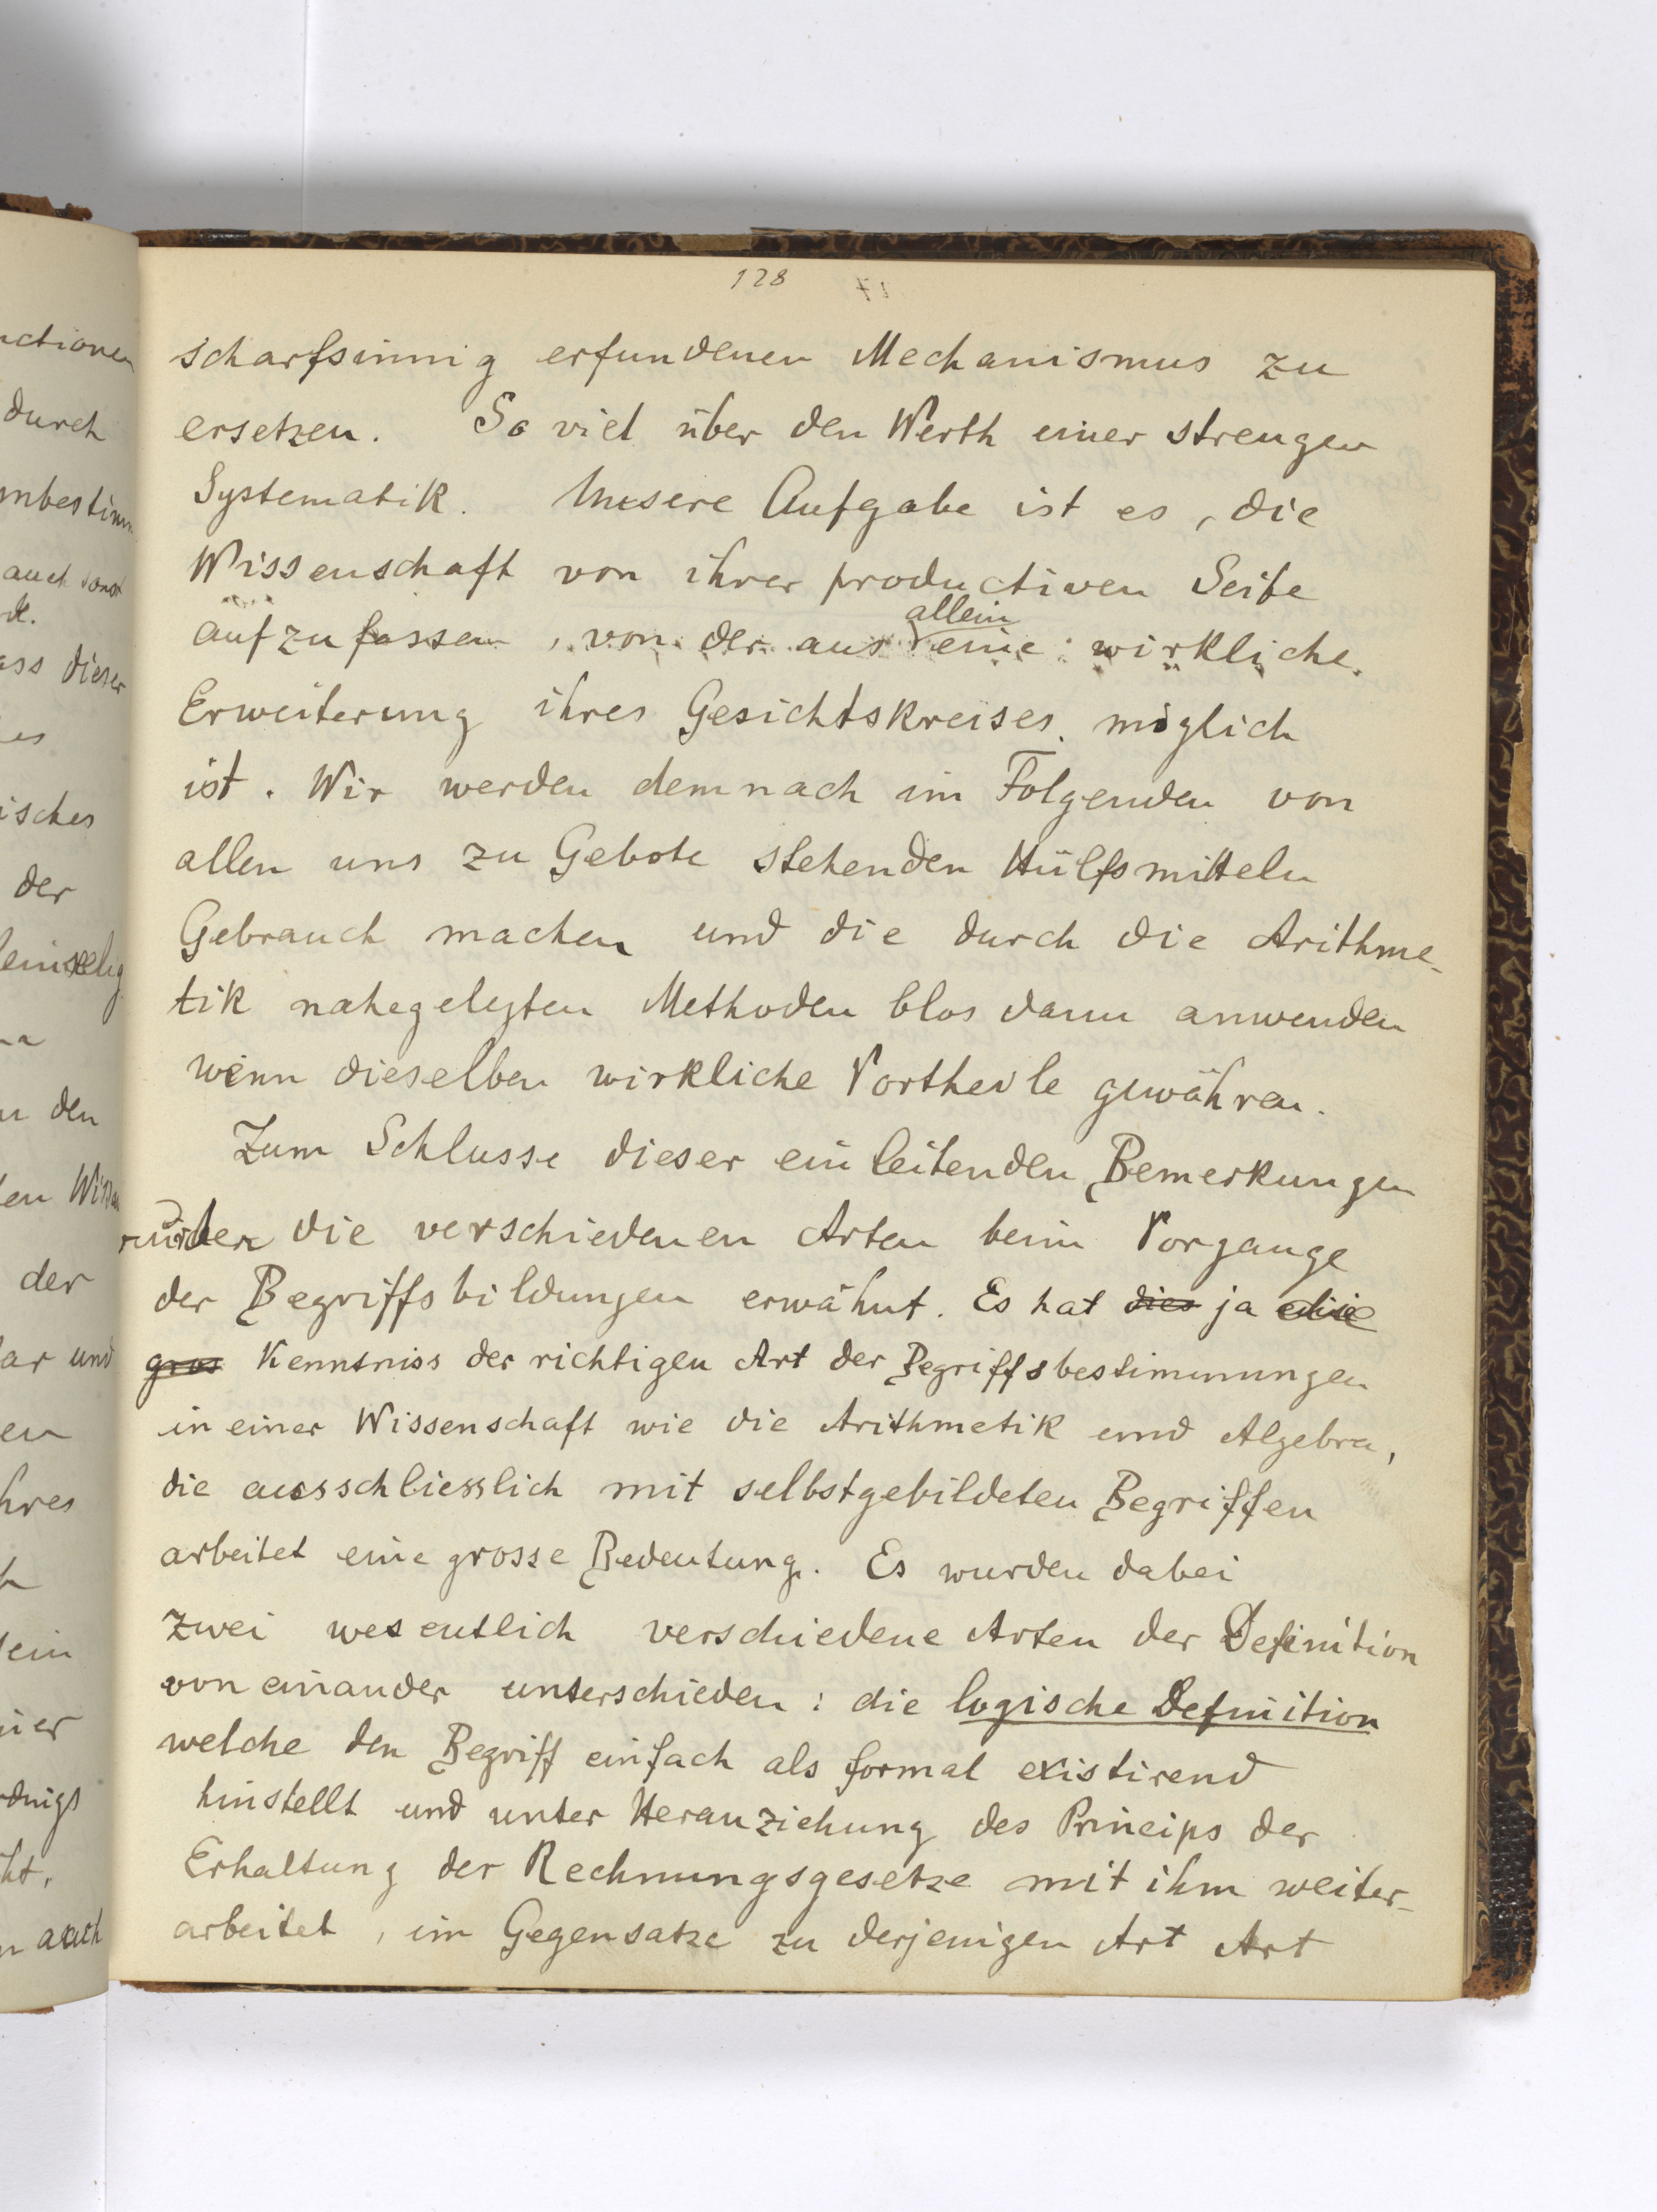 128
scharfsinnig erfundenen Mechanismus zu
ersetzen. So viel über den Werth einer strengen
Systematik. Unsere Aufgabe ist es, die
Wissenschaft von ihrer productiven Seite
allein
aufzufassen, von der aus eine wirkliche
Erweiterung ihres Gesichtskreises möglich
ist. Wir werden demnach im Folgenden von
allen uns zu Gebote stehenden Hülfsmitteln
Gebrauch machen und die durch die Arithme-
tik nahegelegten Methoden blos dann anwenden
wenn dieselben wirkliche Vortheile gewähren.
Zum Schlusse dieser einleitenden Bemerkungen
wurden die verschiedenen Arten beim Vorgange
der Begriffsbildungen erwähnt. Es hat dies ja die
gros Kenntniss der richtigen Art der Begriffsbestimmungen
in einer Wissenschaft wie die Arithmetik und Algebra,
die ausschliesslich mit selbstgebildeten Begriffen
arbeitet eine grosse Bedeutung. Es wurden dabei
zwei wesentlich verschiedene Arten der Definition
von einander unterschieden: die logische Definition
welche den Begriff einfach als formal existirend
hinstellt und unter Heranziehung des Princips der
Erhaltung der Rechnungsgesetze mit ihm weiter-
arbeitet, im Gegensatze zu derjenigen Art Art
durch
auch sonst
der
den
der
und
auch